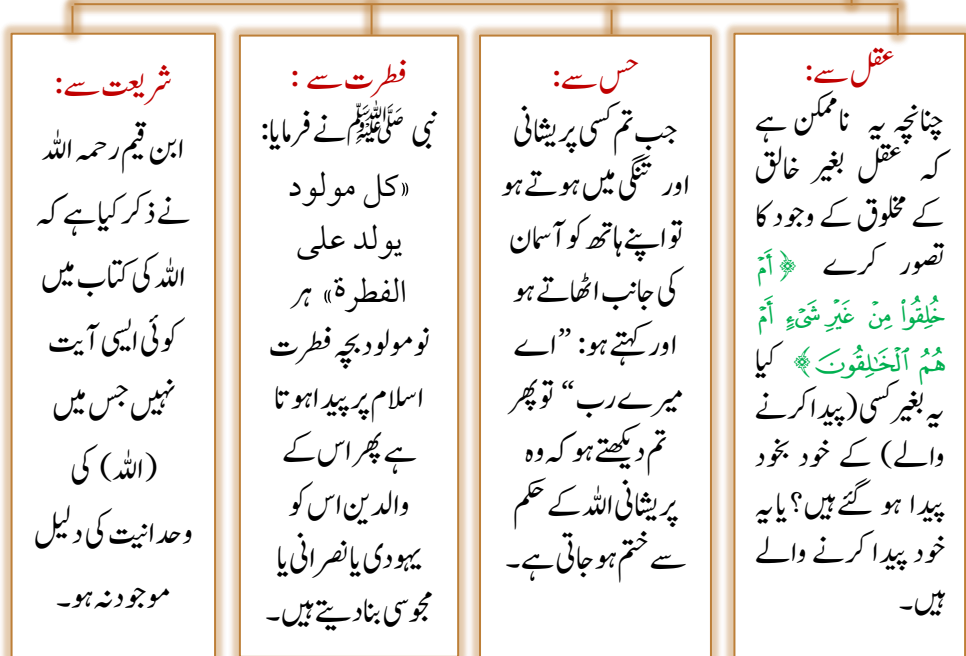 عقل سے:
چنانچہ یہ ناممکن ہے
کہ عقل بغیر خالق
کے مخلوق کے وجود کا
تصور کرے ﴿أَمۡ
خُلِقُواْ مِنۡ غَيۡرِ شَيۡءٍ أَمۡ
هُمُ ٱلۡخَٰلِقُونَ﴾ کیا
یہ بغیر کسی (پیدا کرنے
والے) کے خود بخود
پیدا ہو گئے ہیں؟ یا یہ
خود پیدا کرنے والے
ہیں۔
حس سے:
جب تم کسی پریشانی
اور تنگی میں ہوتے ہو
تو اپنے ہاتھ کو آسمان
کی جانب اٹھاتے ہو
اور کہتے ہو: ”اے
میرے رب“ تو پھر
تم دیکھتے ہو کہ وہ
پریشانی اللہ کے حکم
سے ختم ہو جاتی ہے۔
فطرت سے :
نبی ﷺ نے فرمایا:
«كل مولود
يولد على
الفطرة» ہر
نومولود بچہ فطرت
اسلام پر پیدا ہوتا
ہے پھر اس کے
والدین اس کو
یہودی یا نصرانی یا
مجوسی بنا دیتے ہیں۔
شریعت سے:
ابن قیم رحمہ اللہ
نے ذکر کیا ہے کہ
اللہ کی کتاب میں
کوئی ایسی آیت
نہیں جس میں
(اللہ) کی
وحدانیت کی دلیل
موجود نہ ہو۔